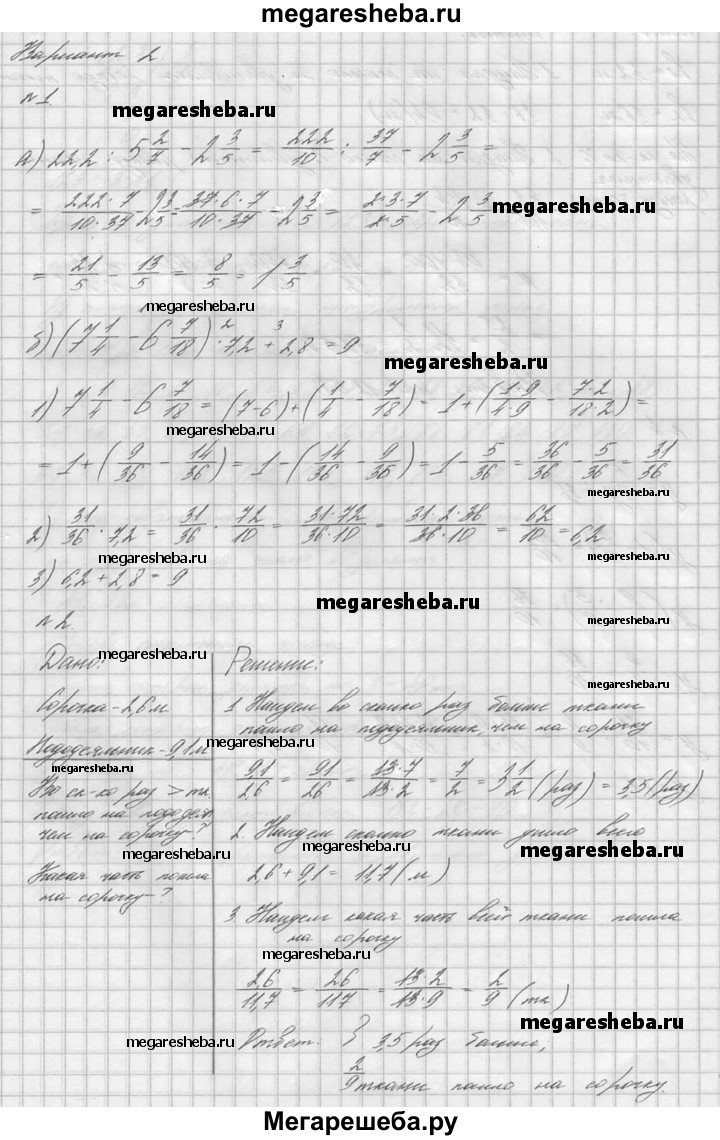 megaresheba.ru
Вариант 2.
№1.
megaresheba.ru
а) 22,2 : 5 2/7 - 2 3/5 = 222/10 : 37/7 - 2 3/5 =
= 222·7/10·37 - 2 3/5 = 37·6·7/10·37 - 2 3/5 = 2·3·7/2·5 - 2 3/5 =
megaresheba.ru
= 21/5 - 13/5 = 8/5 = 1 3/5
megaresheba.ru
б) (7 1/4 - 6 7/18) · 7,2 + 2,8 = 9
megaresheba.ru
1) 7 1/4 - 6 7/18 = (7-6) + (1/4 - 7/18) = 1 + (1·9/4·9 - 7·2/18·2) =
megaresheba.ru
= 1 + (9/36 - 14/36) = 1 - (14/36 - 9/36) = 1 - 5/36 = 36/36 - 5/36 = 31/36
megaresheba.ru
2) 31/36 · 7,2 = 31/36 · 72/10 = 31·72/36·10 = 31·2·36/36·10 = 62/10 = 6,2
megaresheba.ru megaresheba.ru
3) 6,2 + 2,8 = 9
megaresheba.ru
№2.
megaresheba.ru
Дано: megaresheba.ru Решение:
megaresheba.ru
Сорочка - 2,6 м
Пододеяльник - 9,1 м
megaresheba.ru
Во ск-ко раз > тк.
пошло на пододеял.
чем на сорочку?
Какая часть пошла
на сорочку?
1. Найдем во сколько раз больше ткани
пошло на пододеяльник, чем на сорочку
megaresheba.ru
9,1/2,6 = 91/26 = 13·7/13·2 = 7/2 = 3 1/2 (раз) = 3,5 (раз)
megaresheba.ru
2. Найдем сколько ткани ушло всего
megaresheba.ru megaresheba.ru
2,6 + 9,1 = 11,7 (м)
3. Найдем какая часть всей ткани пошла
на сорочку
megaresheba.ru
2,6/11,7 = 26/117 = 13·2/13·9 = 2/9 (тк)
megaresheba.ru
megaresheba.ru Ответ: 3,5 раз больше,
2/9 ткани пошло на сорочку.
megaresheba.ru
Мегарешеба.ру